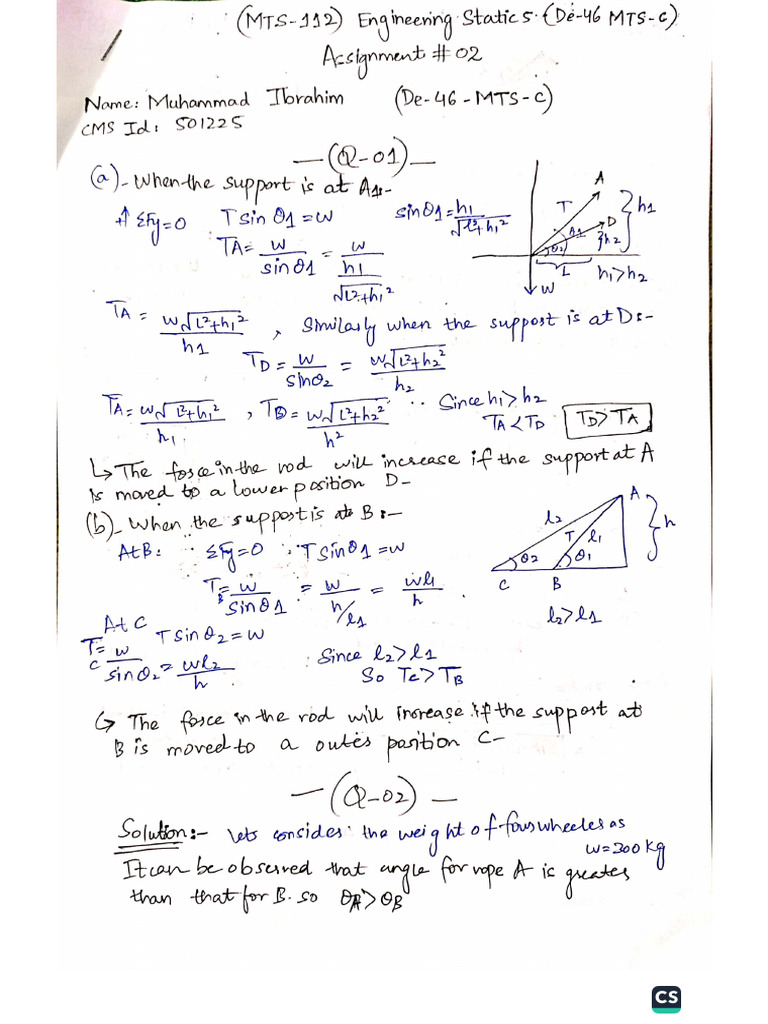 (MTS-112) Engineering Statics. (De-46 MTS-C)
Assignment # 02
Name: Muhammad Ibrahim (De-46-MTS-C)
CMS Id: 501225
—(Q-01)—
(a)- When the support is at A:-
+↑ ΣFy=0 T sin θ1 = w sinθ1 = h1/√(l²+h1²)
TA = w/sinθ1 = w/(h1/√(L²+h1²))
A
T
D
h1
h2
θ2
L
h1>h2
w
TA = w√(L²+h1²)/h1 , Similarly when the support is at D:-
TD = w/sinθ2 = w√(L²+h2²)/h2
TA = w√(L²+h1²)/h1 , TD = w√(L²+h2²)/h2 ∵ Since h1>h2
TA<TD TD>TA
↳ The force in the rod will increase if the support at A
is moved to a lower position D-
(b)- When the support is at B:-
At B: ∵ ΣFy=0 ∵ T sinθ1 = w
TB = w/sinθ1 = w/(h/l1) = wl1/h
A
l2
T
l1
h
θ2
θ1
C B
l2>l1
At C
T sinθ2 = w
TC = w/sinθ2 = wl2/h
: Since l2>l1
So Tc>TB
↳ The force in the rod will increase if the support at
B is moved to a outer position C-
—(Q-02)—
Solution:- Lets consider the weight of four wheeler as
w=300 kg
It can be observed that angle for rope A is greater
than that for B. so θA>θB
CS